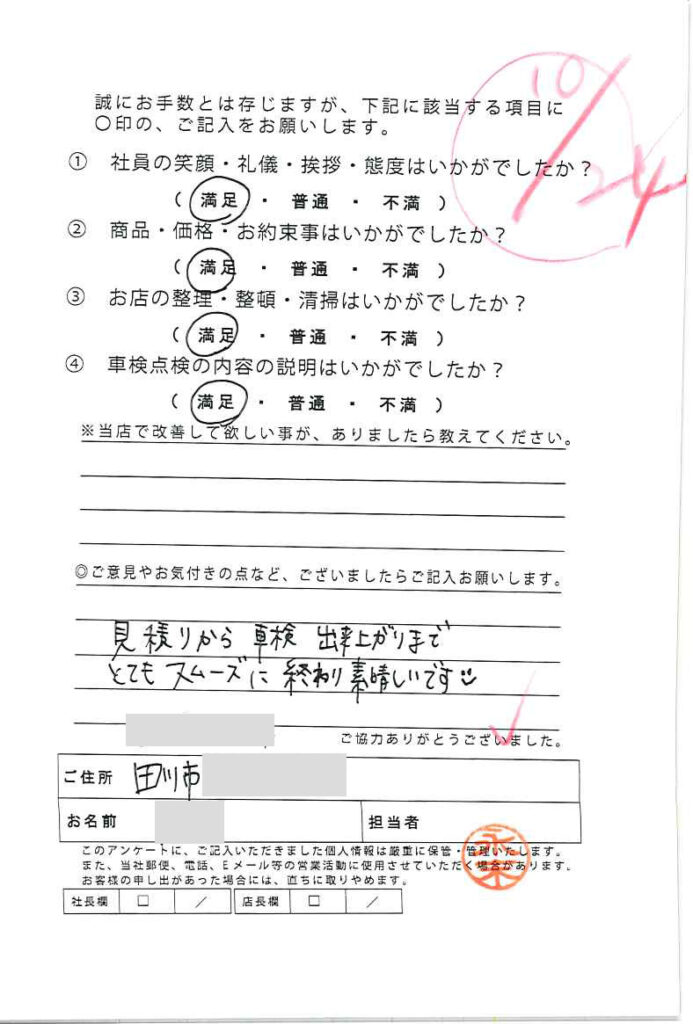 10/24
誠にお手数とは存じますが、下記に該当する項目に
〇印の、ご記入をお願いします。
① 社員の笑顔・礼儀・挨拶・態度はいかがでしたか？
( 満足 ・ 普通 ・ 不満 )
② 商品・価格・お約束事はいかがでしたか？
( 満足 ・ 普通 ・ 不満 )
③ お店の整理・整頓・清掃はいかがでしたか？
( 満足 ・ 普通 ・ 不満 )
④ 車検点検の内容の説明はいかがでしたか？
( 満足 ・ 普通 ・ 不満 )
※当店で改善して欲しい事が、ありましたら教えてください。
◎ご意見やお気付きの点など、ございましたらご記入お願いします。
見積りから 車検 出来上がりまで
とても スムーズに 終わり素晴しいです
ご協力ありがとうございました。
ご住所 田川市
お名前 担当者
このアンケートに、ご記入いただきました個人情報は厳重に保管・管理いたします。
また、当社郵便、電話、Eメール等の営業活動に使用させていただく場合があります。
お客様の申し出があった場合には、直ちに取りやめます。
社長欄 □ ／ 店長欄 □ ／